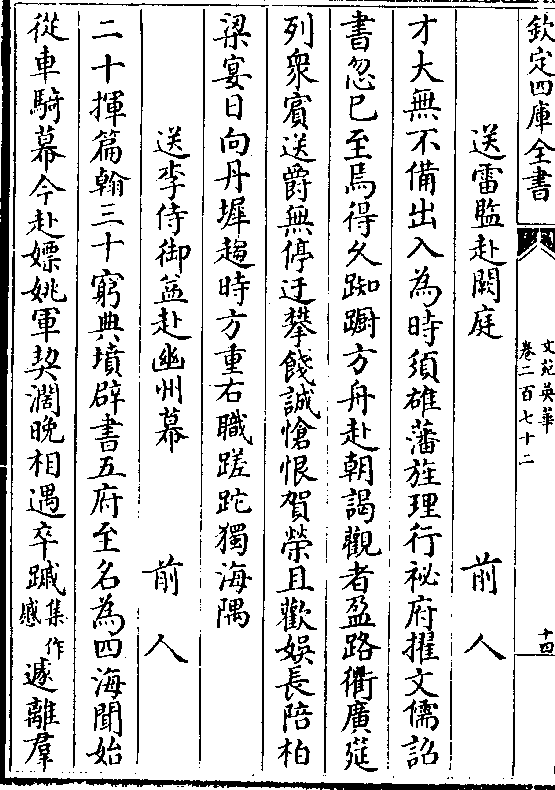 欽定四庫全書
文苑英華
卷二百七十二
十四
送雷監赴闕庭
前人
才大無不備出入為時須雄藩旌理行祕府擢文儒詔
書忽已至焉得久踟蹰方舟赴朝謁觀者盈路衢廣筵
列衆賓送爵無停迂攀餞誠愴恨賀榮且歡娱長陪柏
梁宴日向丹墀趨時方重右職蹉跎獨海隅
送李侍御益赴幽州幕
前人
二十揮篇翰三十窮典墳辟書五府至名為四海聞始
從車騎幕今赴嫖姚軍契濶晚相遇卒蹙集作慼遽離羣